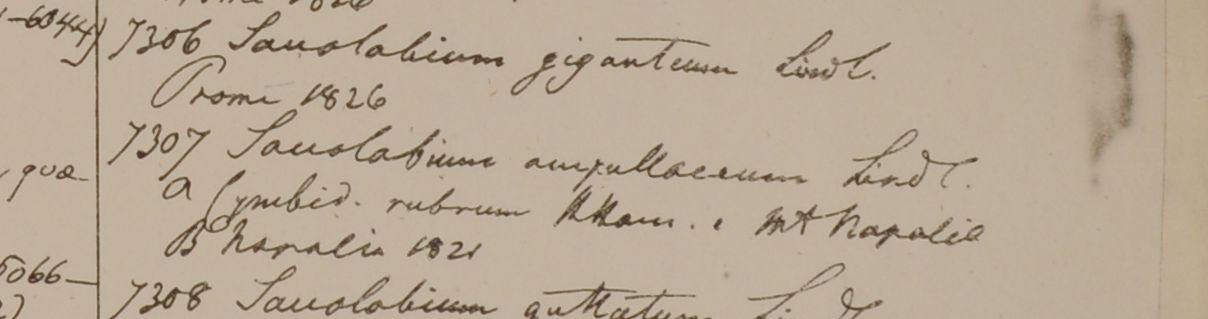 -6044)
7306 Saccolabium giganteum Lindl.
Prome 1826
7307 Saccolabium ampullaceum Lindl.
quæ
a Cymbid. rubrum HHam. e Mt Napaliæ
B Napalia 1821
5066—
7308 Saccolabium guttatum Lindl